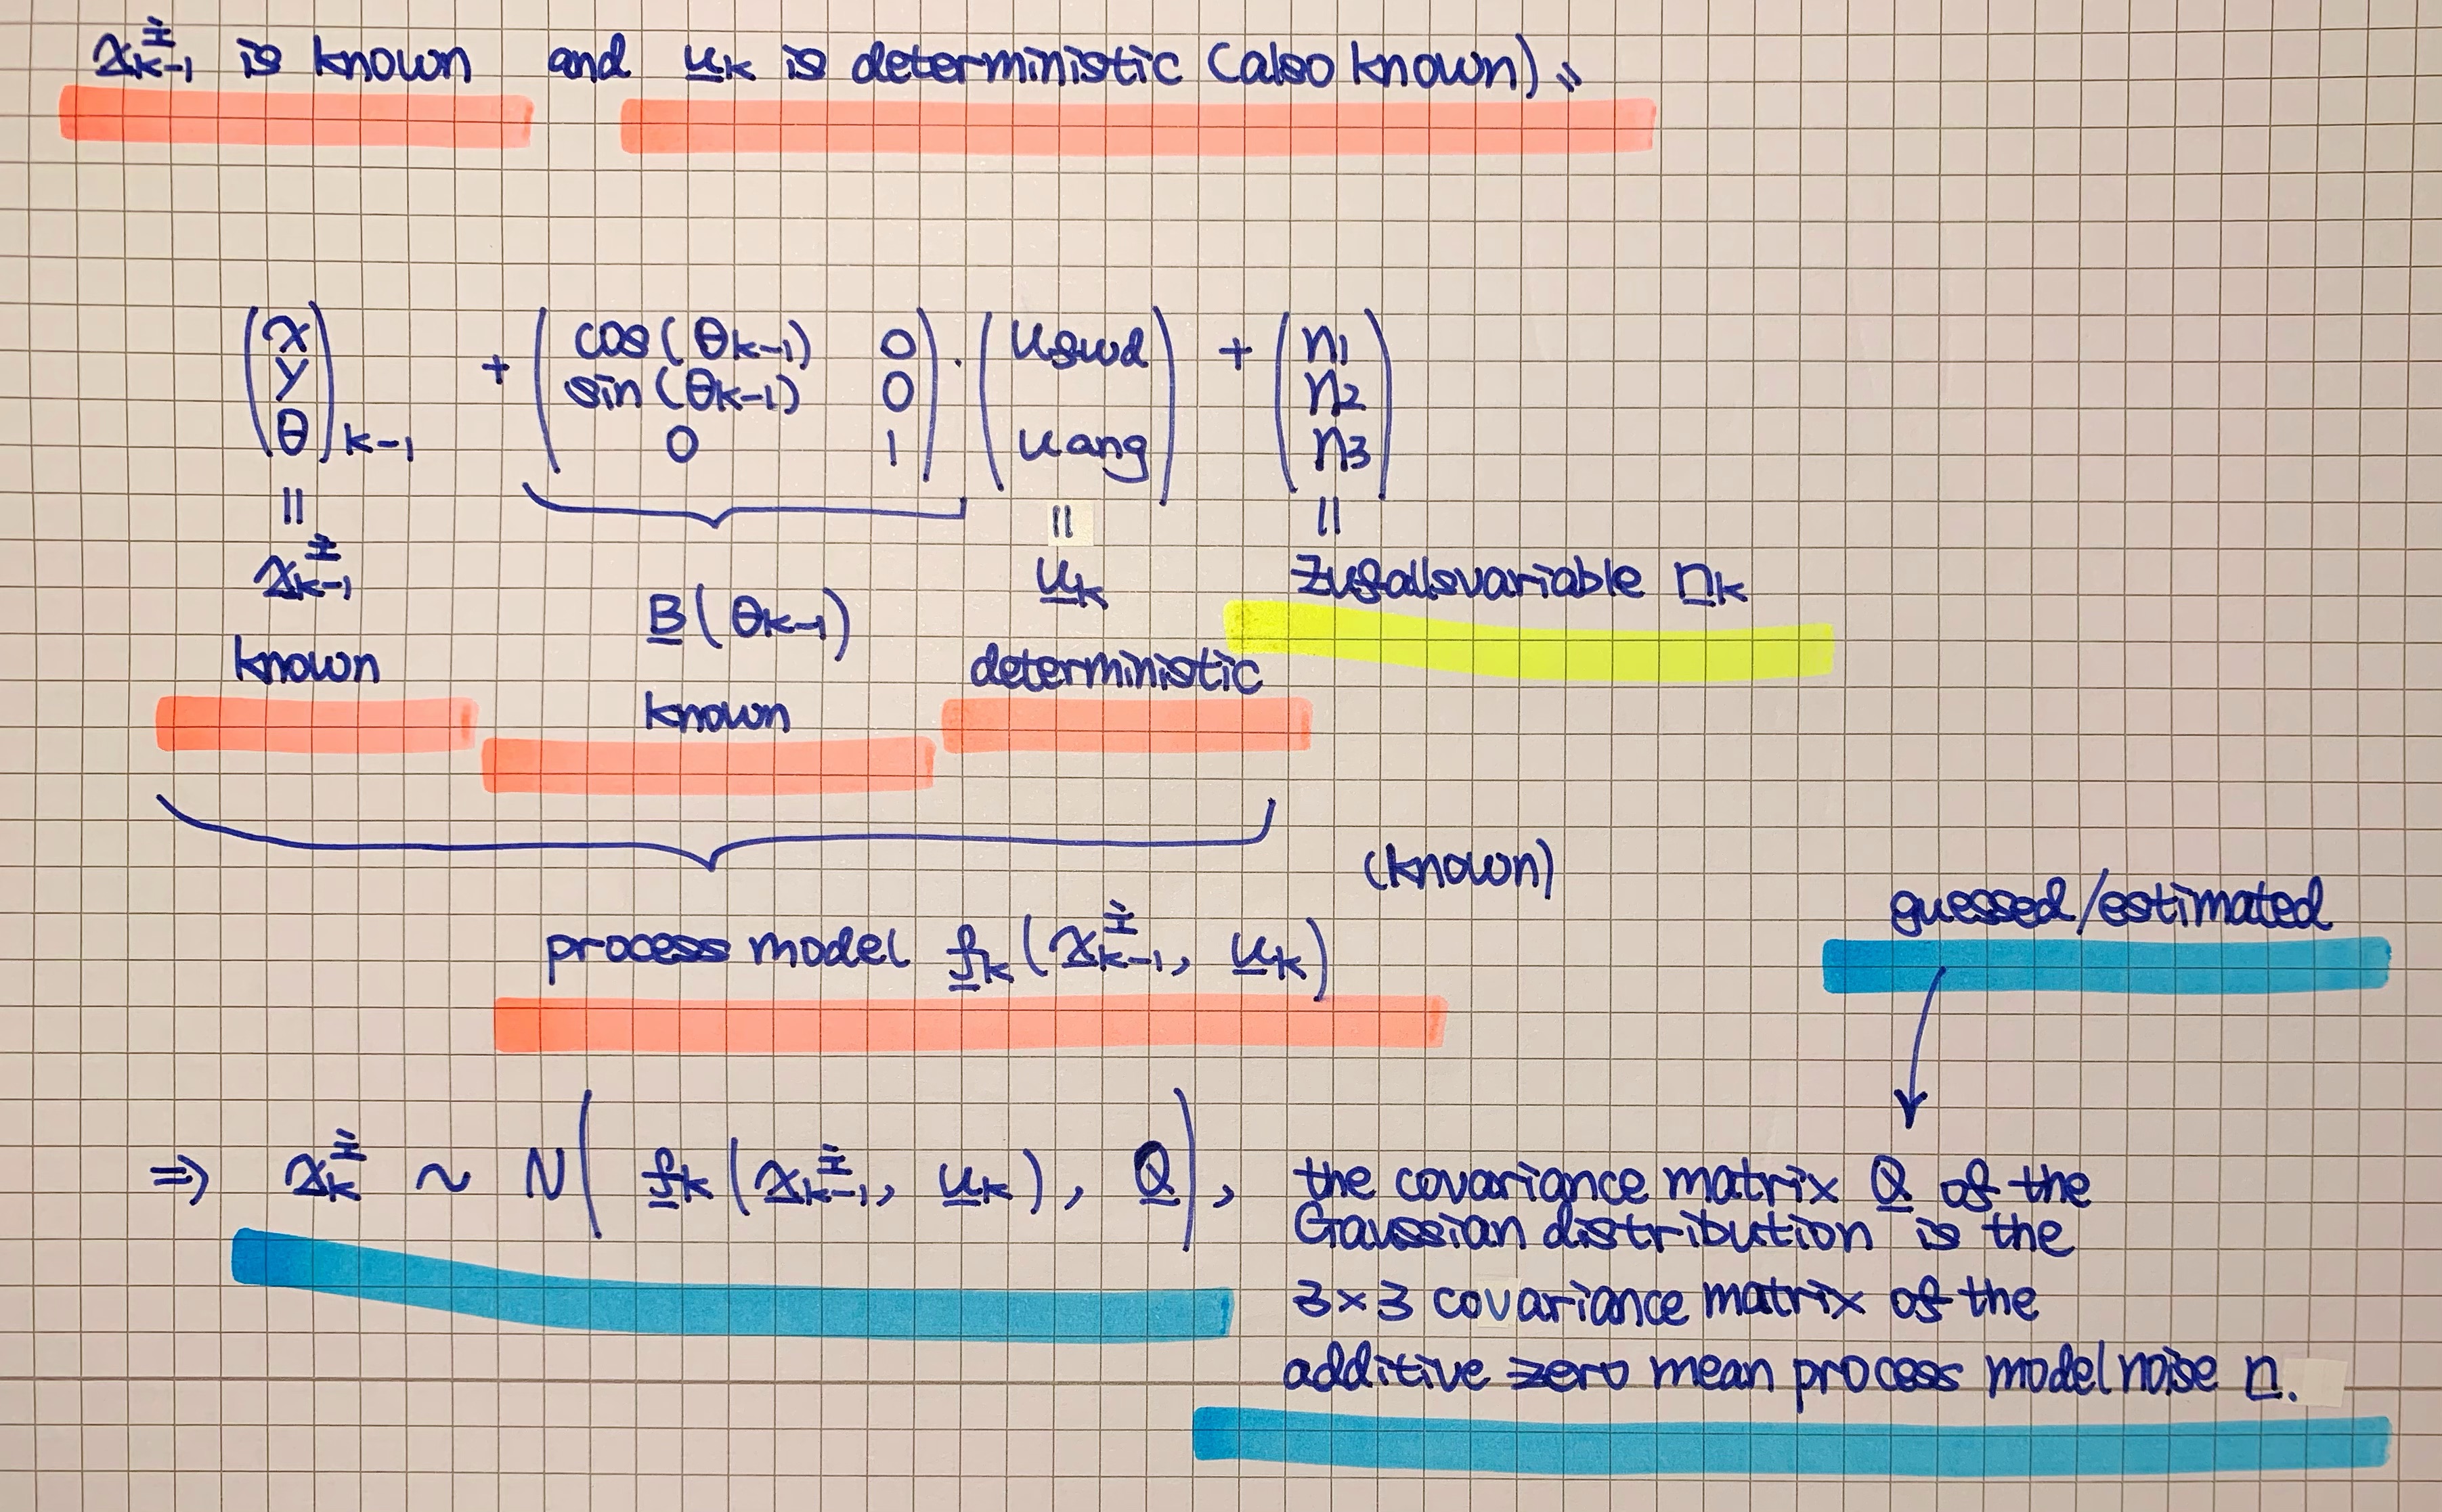 x̲ᵢₖ₋₁ is known and u̲ₖ is deterministic (also known),
( x y θ )ₖ₋₁ + ( cos(θₖ₋₁) 0 sin(θₖ₋₁) 0 0 1 ) · ( u_fwd u_ang ) + ( n₁ n₂ n₃ )
= = =
x̲ᵢₖ₋₁ B̲(θₖ₋₁) u̲ₖ Zufallsvariable n̲ₖ
known known deterministic
(known)
process model f̲ₖ(x̲ᵢₖ₋₁, u̲ₖ)
guessed/estimated
⇒ x̲ᵢₖ ~ N( f̲ₖ(x̲ᵢₖ₋₁, u̲ₖ), Q̲ ), the covariance matrix Q̲ of the
Gaussian distribution is the
3×3 covariance matrix of the
additive zero mean process model noise n̲.